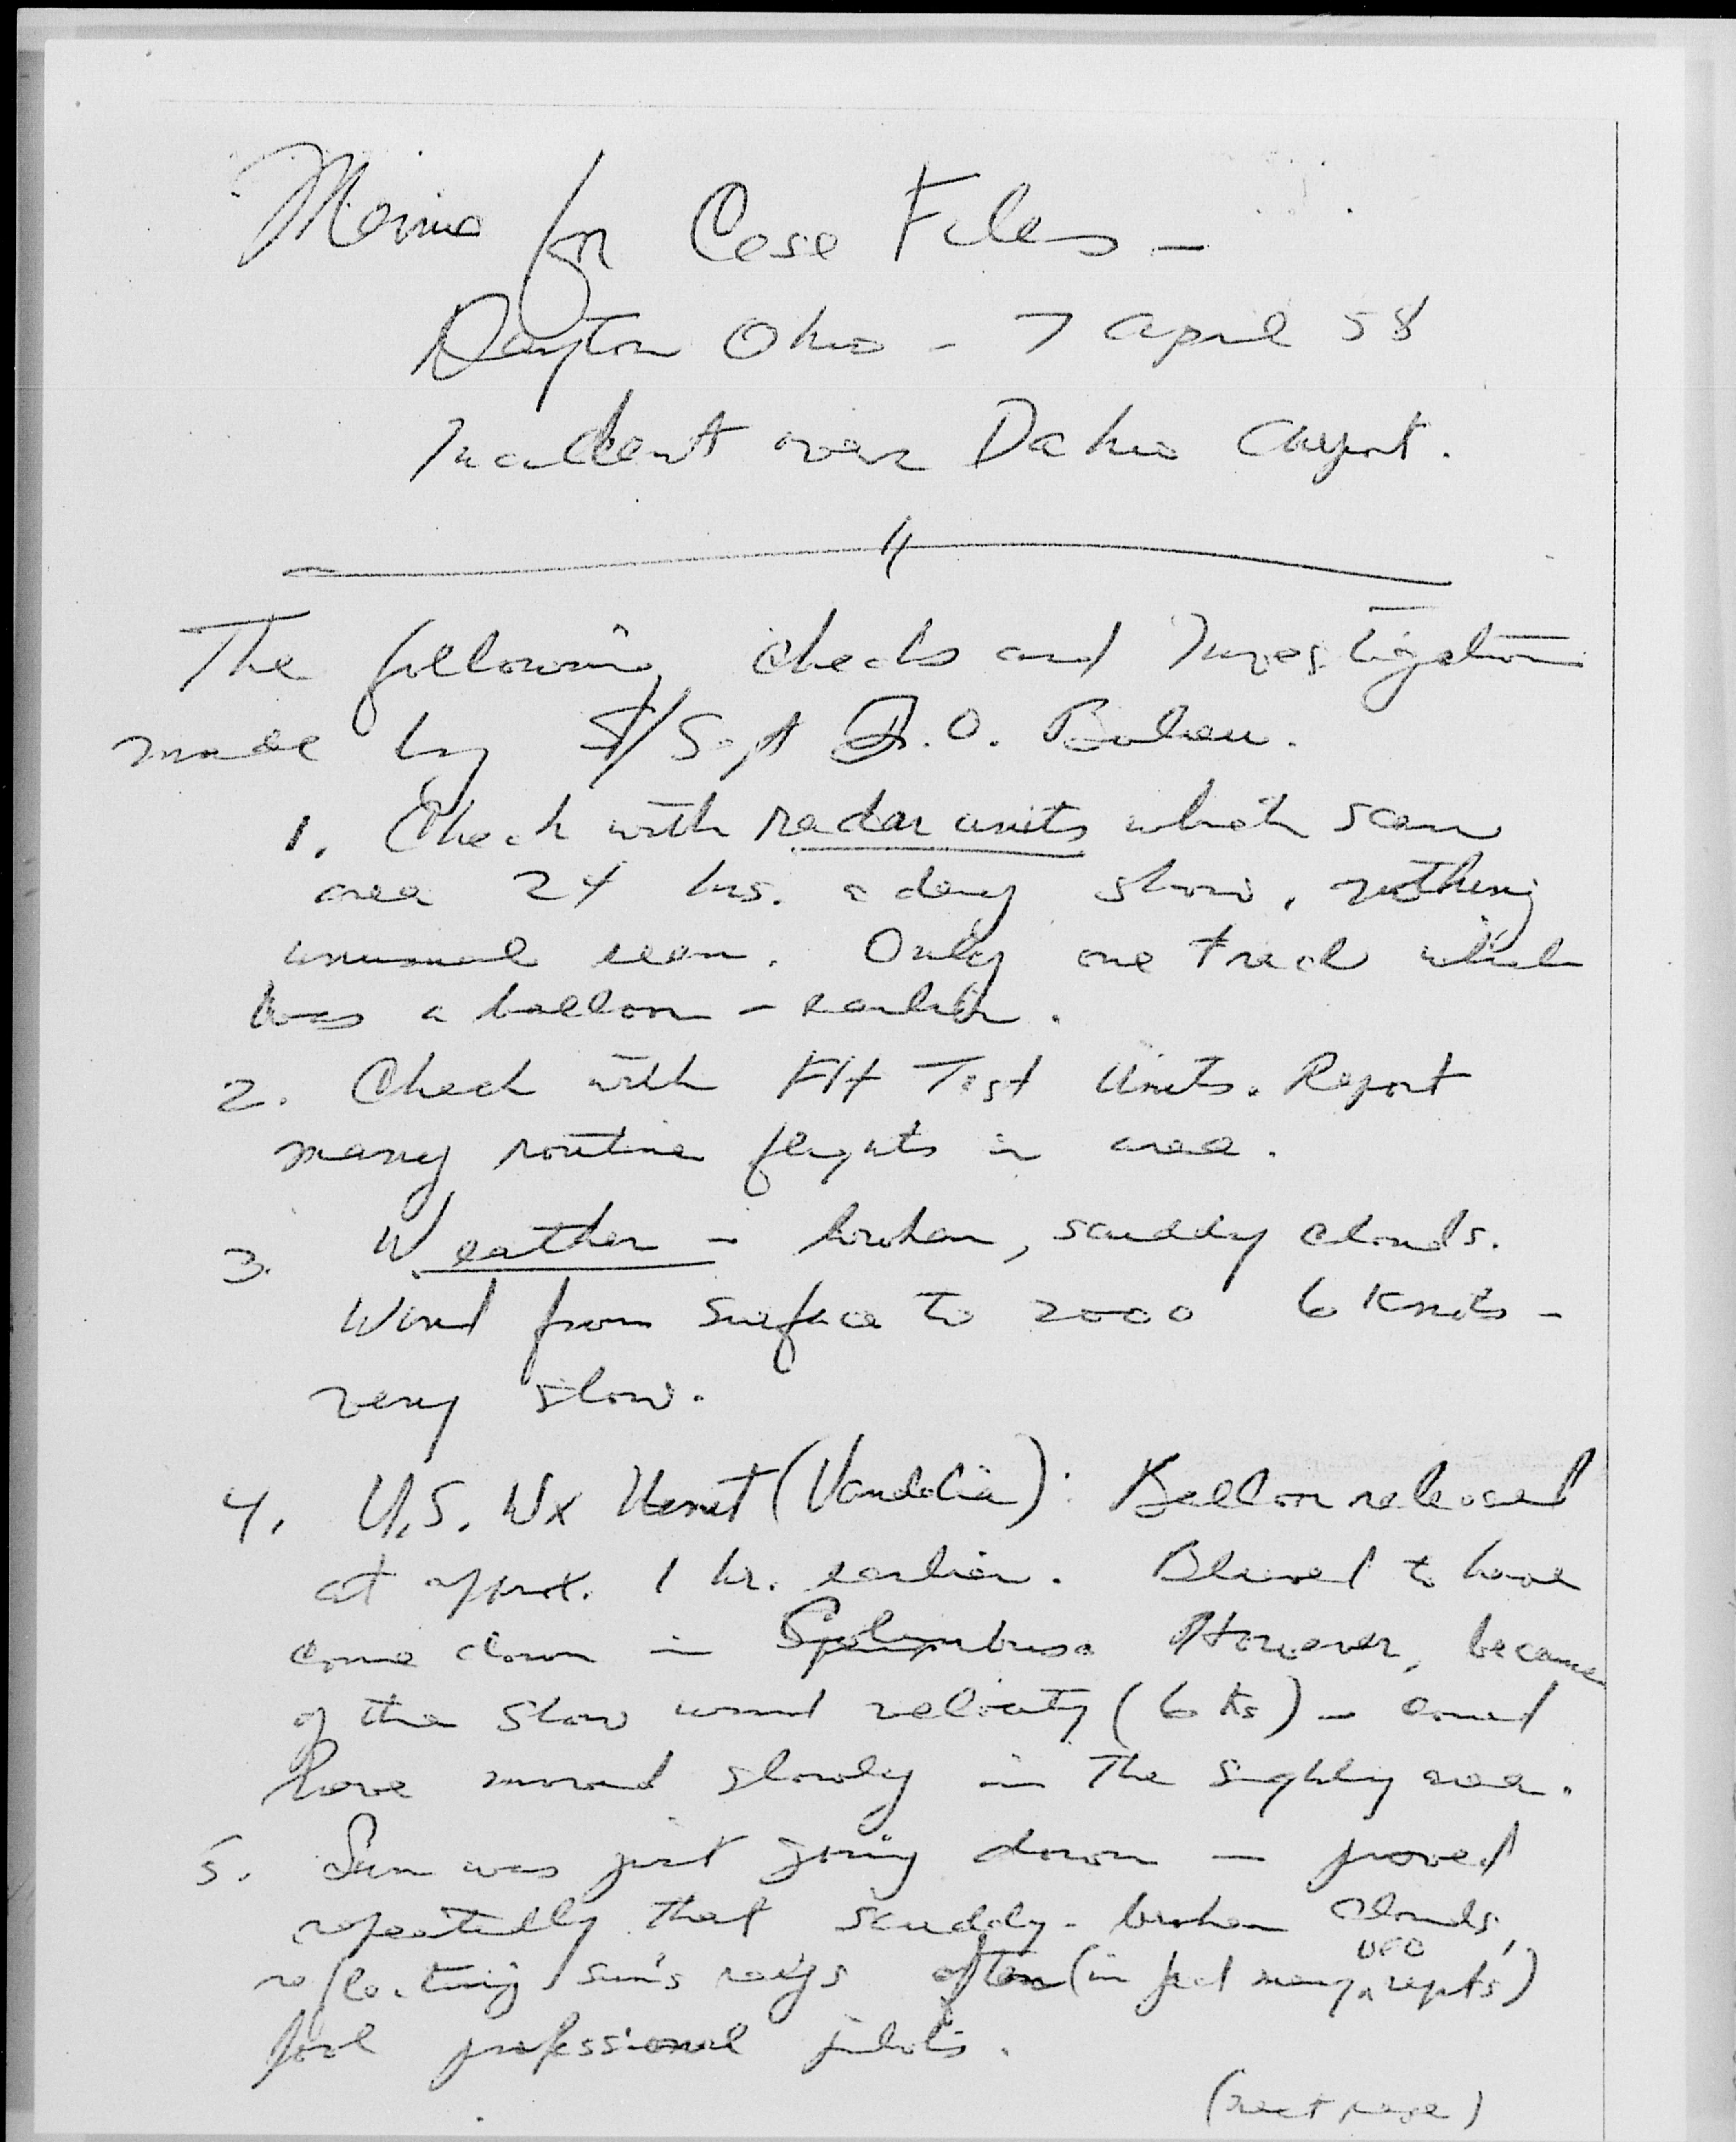 Memo for Case Files -
Dayton Ohio - 7 April 58
Incident over Dahio Airport.
The following checks and Investigations
made by T/Sgt O.
1. Check with radar units which scan
area 24 hrs. a day show, nothing
unusual seen. Only one track which
was a balloon - earlier.
2. Check with Flt Test Units. Report
many routine flights in area.
3. Weather - broken, scuddy clouds.
Wind from surface to 2000 6 Knots -
very slow.
4. U.S. Wx (Vandalia): Balloon released
at approx. 1 hr. earlier. to have
come down in Columbus. However, because
of the slow wind velocity (6 Ks) - could
have moved slowly in the sighting area.
5. Sun was just going down - proved
repeatedly that scuddy - broken clouds,
reflecting sun's rays often (in fact many UFO repts)
fool professional pilots.
(next page)